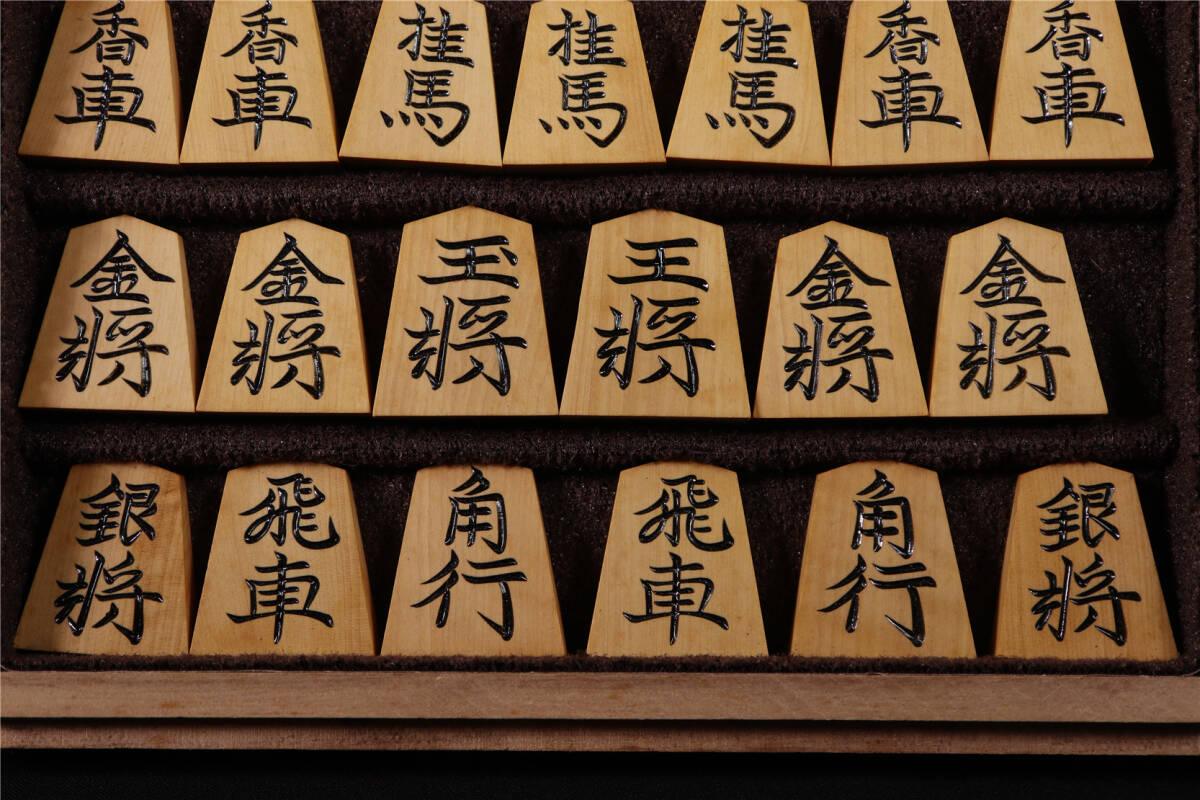 香車
香車
桂馬
桂馬
桂馬
香車
香車
金將
金將
玉將
王將
金將
金將
銀將
飛車
角行
飛車
角行
銀將